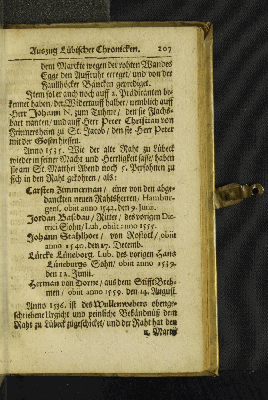 Auszug Lübischer Chronicken. 207
dem Marckte wegen der rohten Wandes
Egge den Auffruhr erreget, und von der
Faullhöcker Bäncken geprediget.
Item sol er auch noch auff 2. Prædicanten be-
kennet haben, der Widertauff halber, nemblich auff
Herr Johann N. zum Tuhme, den sie Flachs-
bart nanten, und auff Herr Peter Christian von
Frimmersheim zu St. Jacob, den sie Herr Peter
mit der Hosen hiessen.
Anno 1535. Wie der alte Raht zu Lübeck
wieder in seiner Macht und Herrligkeit sasse, haben
sie am St. Matthæi Abend noch 5. Persohnen zu
sich in den Raht gekohren, als:
Carsten Zimmerman, einer von den abge-
danckten neuen Rahtsherren, Hambur-
gens, obiit anno 1542. den 9. Junii.
Jordan Basedau, Ritter, des vorigen Die-
rici Sohn, Lub. obiit anno 1555.
Johann Stahlhoet, von Rostock, obiit
anno 1540. den 27. Decemb.
Lütcke Lüneborg, Lub. des vorigen Hans
Lüneburgs Sohn, obiit anno 1539.
den 12. Junii.
Herman von Dorne, aus dem Stifft Breh-
men, obiit anno 1559. den 14. August.
Anno 1536. ist des Wullenwebers obenge-
schriebene Urgicht und peinliche Bekändnüß dem
Raht zu Lübeck zugeschicket, und der Raht hat den